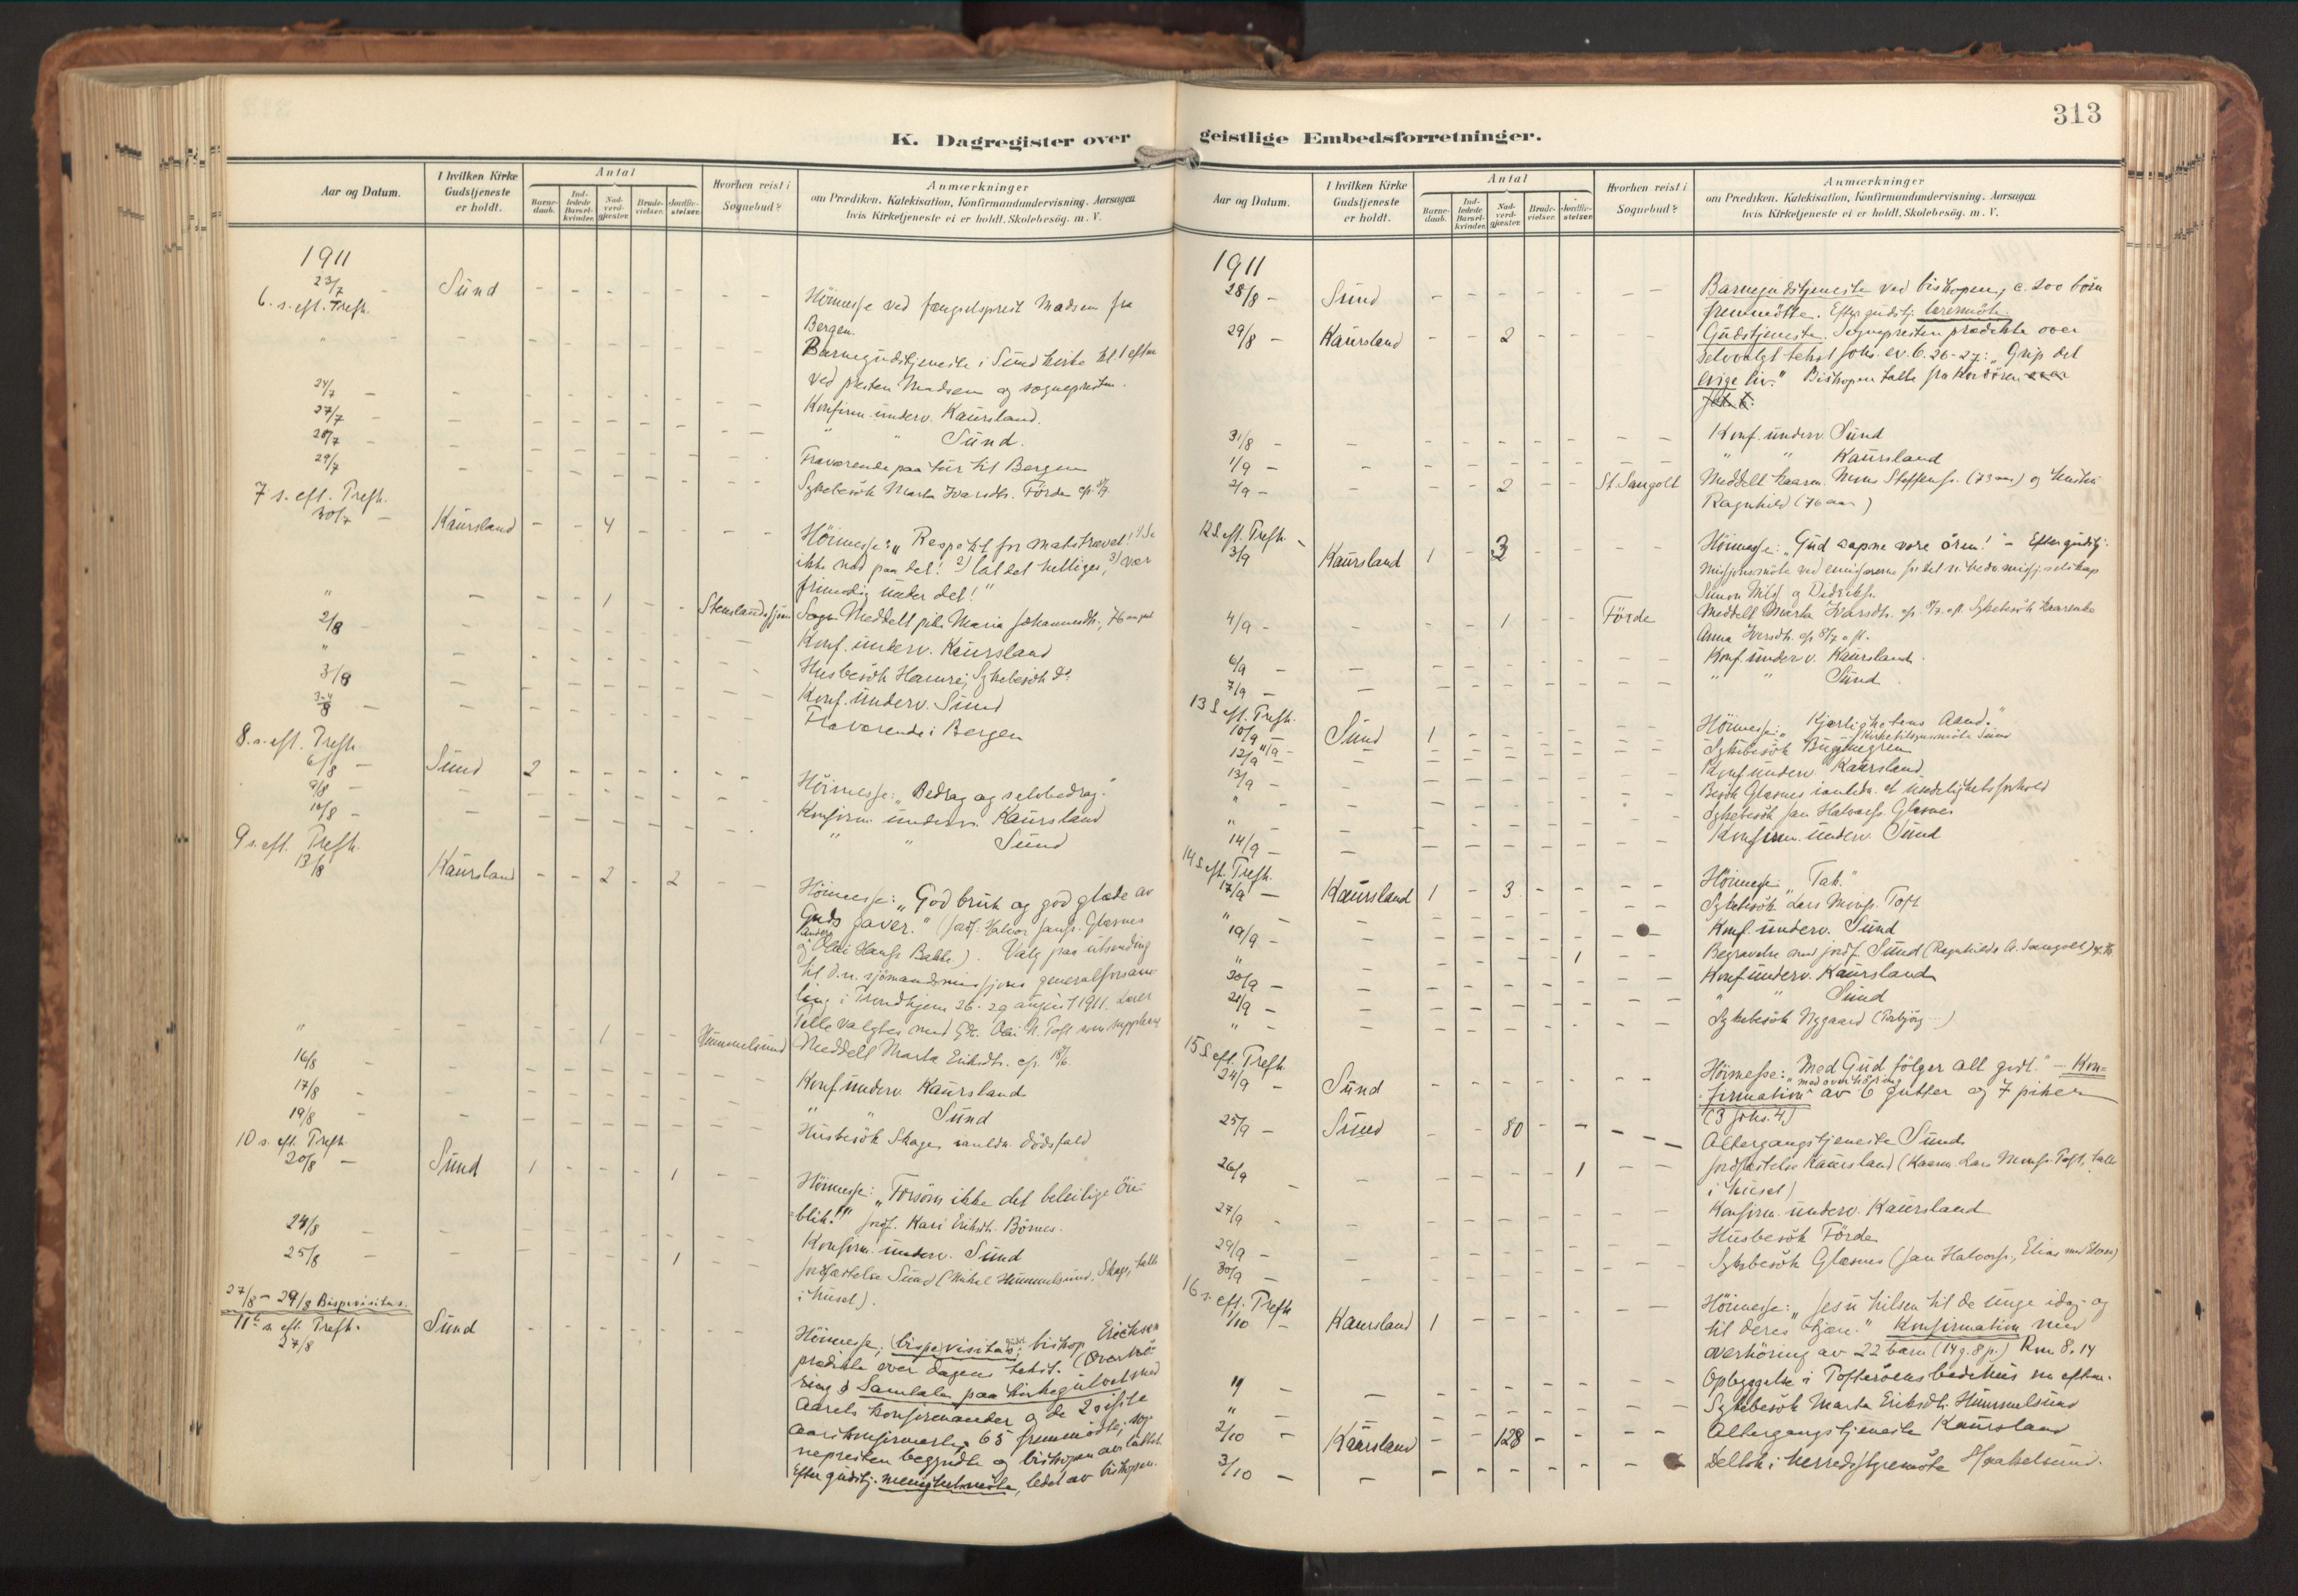 313
K. Dagregister over geistlige Embedsforretninger.
Aar og Datum.
I hvilken Kirke Gudstjeneste er holdt.
Antal
Barne-daab.
Ind-ledede Barsel-kvinder.
Nad-verd-gjæster.
Brude-vielser.
Jordfæ-stelser.
Hvorhen reist i Sognebud?
Anmærkninger
om Prædiken. Katekisation, Konfirmandundervisning. Aarsagen
hvis Kirketjeneste ei er holdt. Skolebesög. m. V.
1911
23/7 - Sund - - - - - - -
6. s. eft. Trefh.
Höimesse ved fængselsprest Madsen fra
Bergen.
Barnegudstjeneste i Sund kirke kl. 1 efter
ved presten Madsen og sognepresten.
24/7 - Konfirm. underv. Kaursland.
27/7 - " " Sund.
28/7 - Fraværende paa tur til Bergen
29/7 Sykebesök Marta Ivarsdtr. Förde
7 s. eft. Trefh.
30/7 - Kaursland - - 4 - - - -
Höimesse: "Respekt for matstrævet! 1) Se
ikke ned paa det! 2) lat det helliges, 3) vær
frimodig under det!"
" - 1 - - Stenslandssjöen Meddelt pike Maria Johannesdtr., 76 aar
2/8 Konf. underv. Kaursland
" Husbesök Hamre, Sykebesök do
3/8 Konf. underv. Sund
3-4/8 - Fraværende i Bergen
8. s. eft. Trefh.
6/8 - Sund 2 - - - - - -
Höimesse: "Bedrag og selvbedrag."
9/8 - Konfirm. underv. Kaursland
10/8 - " " Sund
9 s. eft. Trefh.
13/8 Kaursland - - 2 - 2 - -
Höimesse: "God bruk og god glæde av
Guds gaver." (jordf. Halvor Jansn. Glesnes
og Olai Hansn. Bakke). Valg paa utsending
til d. n. sjömandsmissjons generalforsam-
ling i Trondhjem 26-29 august 1911. Lærer
Telle valgtes med Olai N. Toft som supplean
" 1 - - Hummelsund Meddelt Marta Eriksdtr. ef. 18/6.
16/8 - Konf. underv. Kaursland
17/8 - " " Sund
19/8 - Husbesök Skage i anledn. dödsfald
10 s. eft. Trefh.
20/8 - Sund 1 - - - 1 - -
Höimesse: "Forsöm ikke det beleilige öie-
blik!" jordf. Kari Eriksdtr. Börnes.
24/8 - Konfirm. underv. Sund
25/8 - 1 Jordfæstelse Sund (Mikal Hummelsund, Skage, talte
i huset).
27/8 - 29/8 Bispevisitas.
11te s. eft. Trefh.
27/8 Sund - - - - - - -
Höimesse; (bispe)visitas; biskop Erichsen
prædikte over dagens tekst. (Overhö-
ring) Samtalen paa kirkegulvet med
aarets konfirmander og de 2 sidste
aars konfirmerte; 65 fremmötte; sog-
nepresten begyndte og biskopen avsluttet.
Efter gudstj. menighetsmöte, ledet av biskopen.
Aar og Datum.
I hvilken Kirke Gudstjeneste er holdt.
Antal
Barne-daab.
Ind-ledede Barsel-kvinder.
Nad-verd-gjæster.
Brude-vielser.
Jordfæ-stelser.
Hvorhen reist i Sognebud?
Anmærkninger
om Prædiken. Katekisation, Konfirmandundervisning. Aarsagen
hvis Kirketjeneste ei er holdt. Skolebesög. m. V.
1911
28/8 - Sund - - - - - - -
Barnegudstjeneste ved biskopen; c. 200 börn
fremmötte. Efter gudstj. læremöte.
29/8 - Kaursland - - 2 - - - -
Gudstjeneste. Sognepresten prædikte over
selvvalgt tekst Joh. ev. 6. 26-27: "Grip det
evige liv." Biskopen talte fra kordören
31/8 - Konf. underv. Sund
1/9 - " " Kaursland
2/9 - 2 - - St. Sangolt Meddelt kaarm. Mons Steffensn. (73 aar) og hustru
Ragnhild (76 aar)
12 S. eft. Trefh. -
3/9 Kaursland 1 - 3 - - - -
Höimesse: "Gud aapne vore ören!" - Efter gudstj.
missjonsmöte ved emissærerne for det v. indremissj. selskap
Simon Nils. og Didriksn.
4/9 - 1 - - Förde Meddelt Marta Ivarsdtr. Sykebesök kaarenke
Anna Iversdtr.
6/9 - Konf. underv. Kaursland.
7/9 - " " Sund
13 S. eft. Trefh.
10/9 - Sund 1 - - - - - -
Höimesse: "Kjærlighetens Aand."
11/9 - Sykebesök Buggnegren Kirketilsynsmöte Sund
12/9 - Konf. underv. Kaursland
13/9 - Besök Glesnes i anledn. et usedelighetsforhold
" - Sykebesök Jan Halvorsn. Glesnes
14/9 - Konfirm. underv. Sund
14 S. eft. Trefh.
17/9 - Kaursland 1 - 3 - - - -
Höimesse: "Tak."
" - Sykebesök Lars Monsn. Toft
19/9 - Konf. underv. Sund
" 1 Begravelse med jordf. Sund (Ragnhilds A. Sangolt)
20/9 - Konf. underv. Kaursland
21/9 - " " Sund
" - Sykebesök Nygaard
15 S. eft. Trefh.
24/9 - Sund - - - - - - -
Höimesse: "Med Gud fölger alt godt." - Kon-
firmation med overhöring av 6 gutter og 7 piker
(3 Joh. 4)
25/9 - Sund - - 80 - - - -
Altergangstjeneste Sund
26/9 - 1 Jordfæstelse Kaursland (Kaarm. Lars Monsn. Toft, talte
i huset)
27/9 - Konfirm. underv. Kaursland
29/9 - Husbesök Förde
30/9 - Sykebesök Glesnes (Jan Halvorsn., Elias)
16 s. eft. Trefh.
1/10 - Kaursland 1 - - - - - -
Höimesse: "Jesu hilsen til de unge idag og
til deres kjære." Konfirmation med
overhöring av 22 barn (14 g. 8 p.) Rm 8. 14
" - Opbyggelse i Tofteröens bedehus
" - Sykebesök Marta Eriksdtr. Hummelsund
2/10 - Kaursland - - 128 - - - -
Altergangstjeneste Kaursland
3/10 - Deltok i herredsstyremöte Skaahelsund.